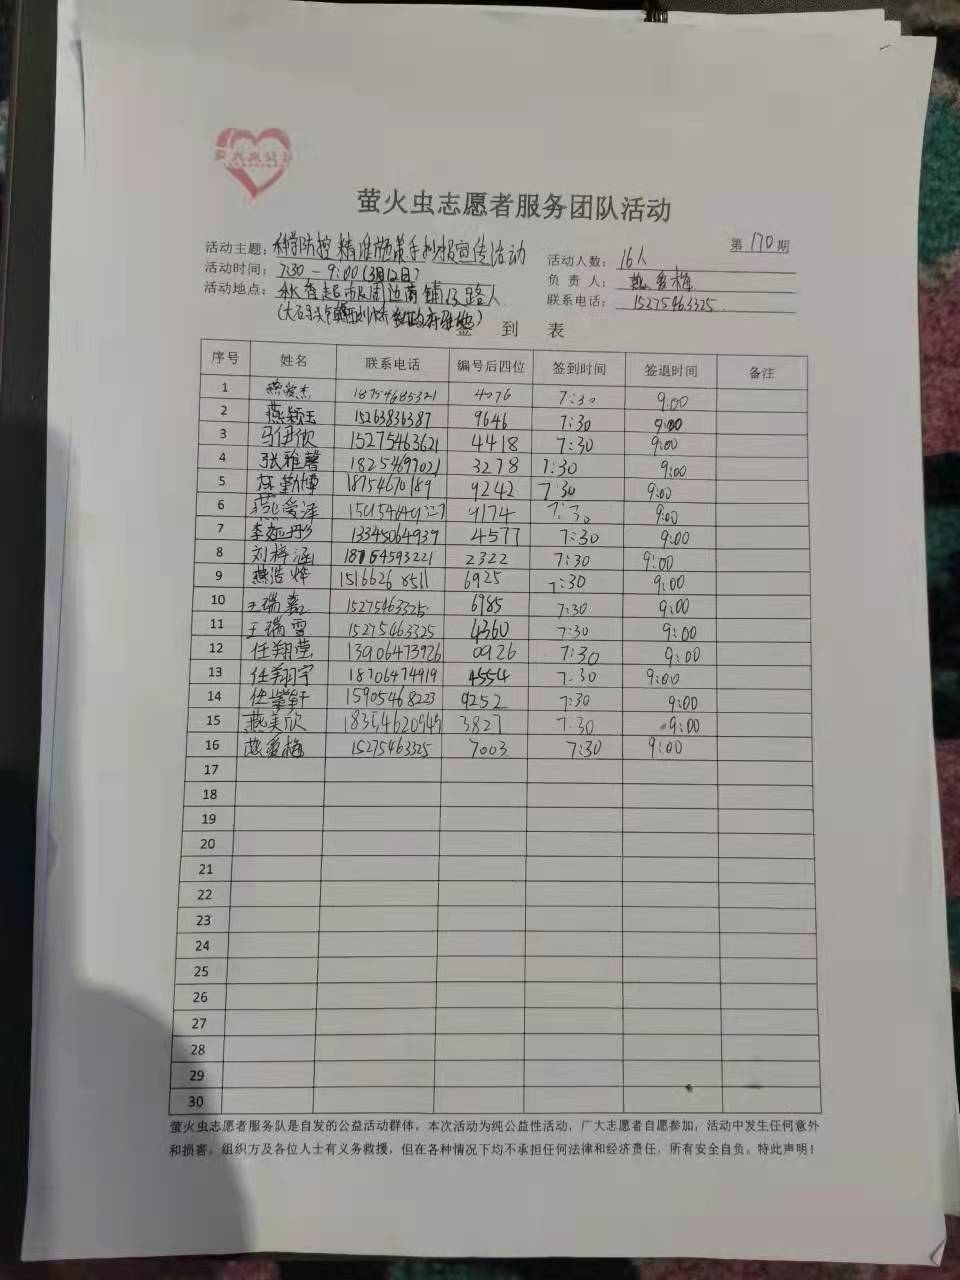 萤火虫志愿者服务团队活动
第170期
活动主题：科学防控 精准施策手抄报宣传活动
活动人数：16人
活动时间：7:30-9:00(3月12日)
负责人：燕爱梅
活动地点：秋香超市及周边商铺及路人
联系电话：15275463325
签到表
序号 姓名 联系电话 编号后四位 签到时间 签退时间 备注
1 燕爱杰 18754685321 4076 7:30 9:00
2 燕颖玉 15263836387 9646 7:30 9:00
3 马伊依 15275463621 4418 7:30 9:00
4 张雅馨 18254697021 3278 7:30 9:00
5 勤博 18754670189 9242 7:30 9:00
6 燕爱泽 9174 7:30 9:00
7 李娅彤 13345064939 4577 7:30 9:00
8 刘梓涵 18764593221 2322 7:30 9:00
9 燕浩烨 1516626 8511 6925 7:30 9:00
10 王瑞嘉 15275463325 6985 7:30 9:00
11 王瑞雪 15275463325 4360 7:30 9:00
12 任翔莹 13906473926 0926 7:30 9:00
13 任翔宇 18706474919 4554 7:30 9:00
14 任紫轩 15905468223 9252 7:30 9:00
15 燕美欣 18354620949 3827 7:30 9:00
16 燕爱梅 15275463325 7003 7:30 9:00
17
18
19
20
21
22
23
24
25
26
27
28
29
30
萤火虫志愿者服务队是自发的公益活动群体，本次活动为纯公益性活动，广大志愿者自愿参加，活动中发生任何意外
和损害，组织方及各位人士有义务救援，但在各种情况下均不承担任何法律和经济责任，所有安全自负。特此声明！